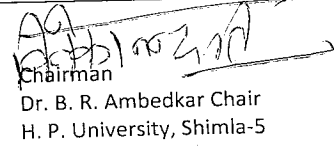 Chairman
Dr. B. R. Ambedkar Chair
H. P. University, Shimla-5